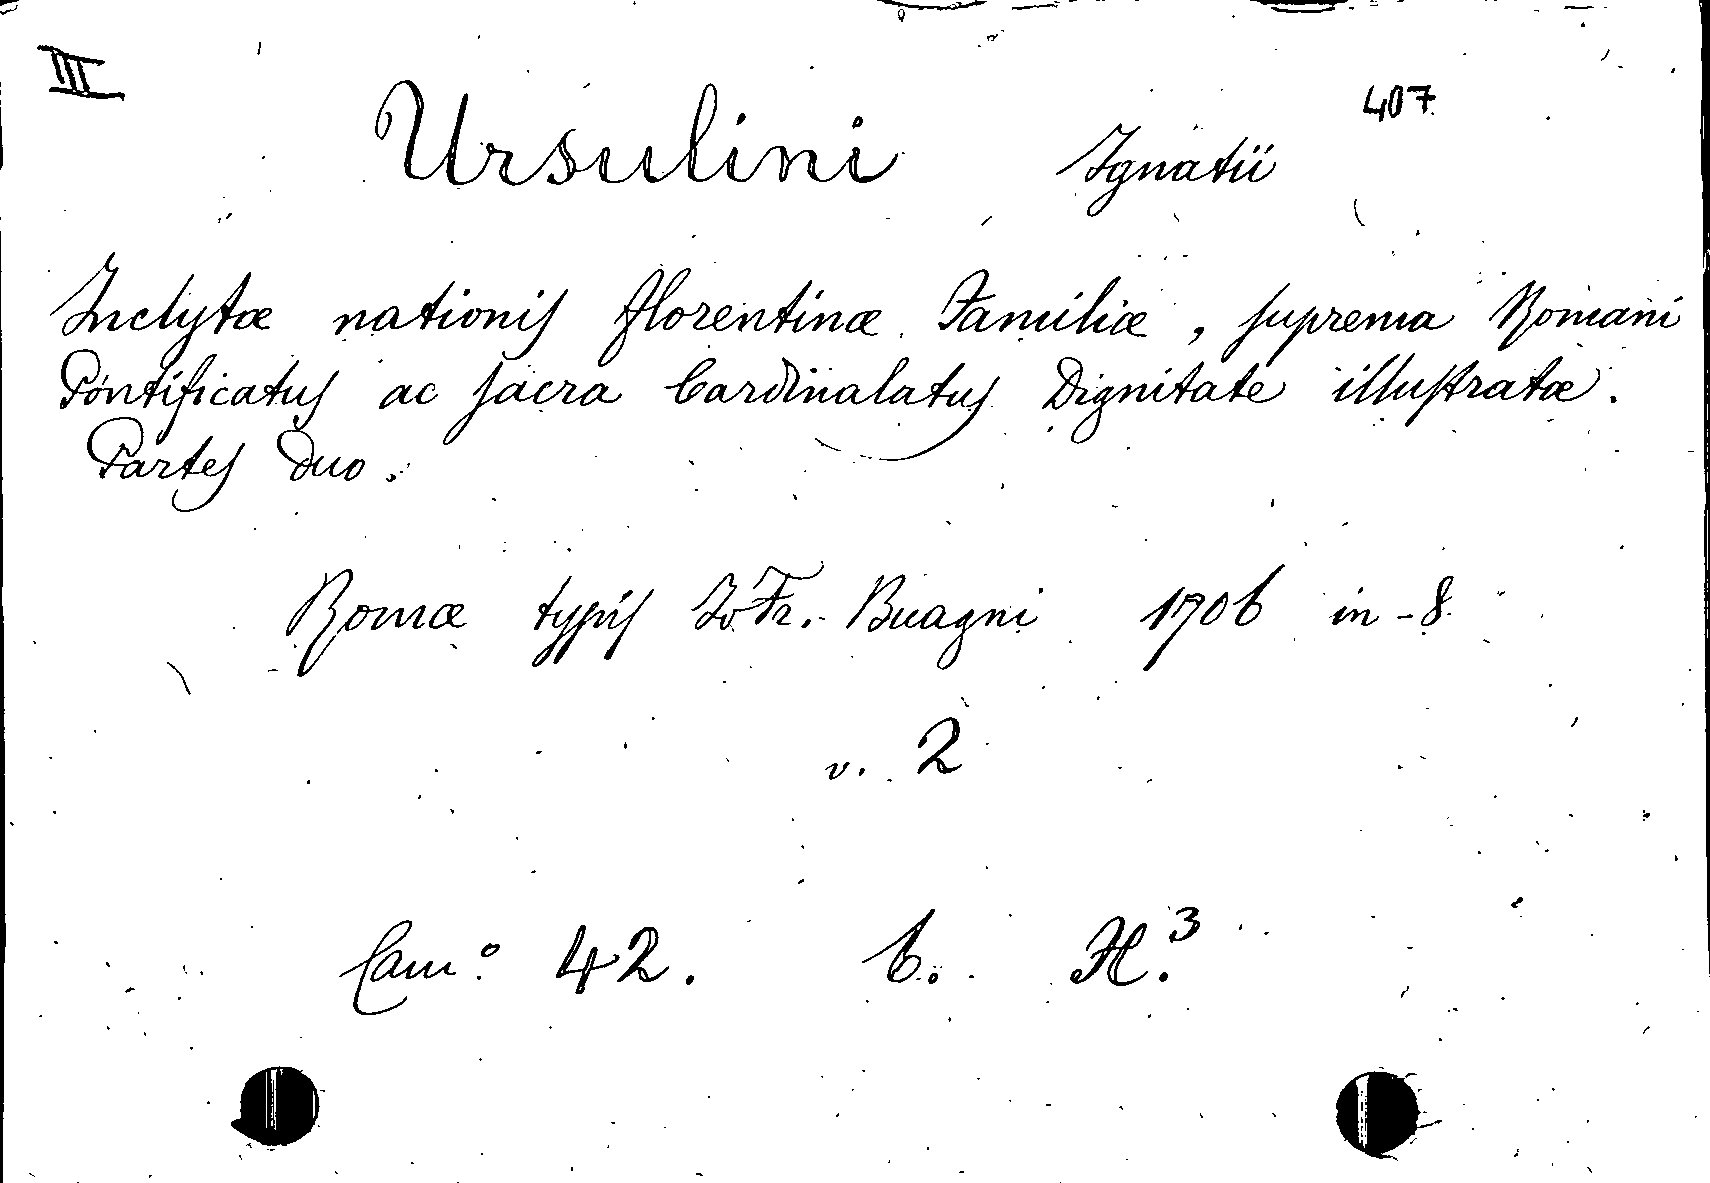 III
407
Ursulini Ignatii
Inclytæ nationis florentinæ Familiæ, suprema Romani
Pontificatus ac sacra Cardinalatus Dignitate illustratæ.
Partes duo.
Romæ typis Jo Fr. Buagni 1706 in-8
v. 2
Cam.º 42. b. H.³